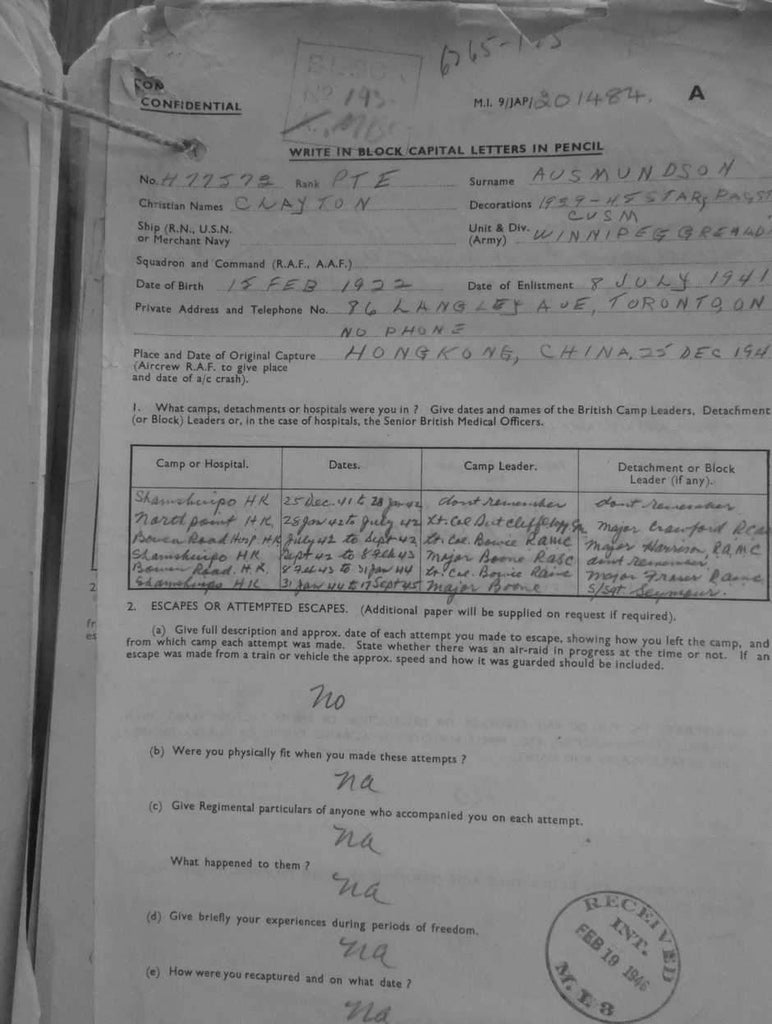 CONFIDENTIAL
M.I. 9/JAP/201484. A
WRITE IN BLOCK CAPITAL LETTERS IN PENCIL
No. H77573 Rank PTE Surname AUSMUNDSON
Christian Names CLAYTON Decorations 1939-45 STAR,
CVSM
Ship (R.N., U.S.N. or Merchant Navy Unit & Div. (Army) WINNIPEG
Squadron and Command (R.A.F., A.A.F.)
Date of Birth 15 FEB 1922 Date of Enlistment 8 JULY 1941
Private Address and Telephone No. 86 LANGLEY AVE, TORONTO, ON
NO PHONE
Place and Date of Original Capture HONGKONG, CHINA, 25 DEC 194
(Aircrew R.A.F. to give place
and date of a/c crash).
1. What camps, detachments or hospitals were you in ? Give dates and names of the British Camp Leaders, Detachment
(or Block) Leaders or, in the case of hospitals, the Senior British Medical Officers.
Camp or Hospital. Dates. Camp Leader. Detachment or Block Leader (if any).
Shamshuipo HK 25 Dec. 41 to 28 Jan 42 dont remember dont remember
North point HK. 28 Jan 42 to July 42 Lt. Col Sutcliffe Major Crawford
Bowen Road Hosp. HK July 42 to Sept 42 Lt. Col. Bowie RAMC Major Harrison, RAMC
Shamshuipo HK Sept 42 to 8 Feb 43 Major Boone RASC dont remember
Bowen Road. H.K. 8 Feb 43 to 31 Jan 44 Lt. Col. Bowie RAMC Major Fraser RAMC
Shamshuipo HK 31 Jan 44 to 17 Sept 45 Major Boone S/Sgt Seymour.
2. ESCAPES OR ATTEMPTED ESCAPES. (Additional paper will be supplied on request if required).
(a) Give full description and approx. date of each attempt you made to escape, showing how you left the camp, and
from which camp each attempt was made. State whether there was an air-raid in progress at the time or not. If an
escape was made from a train or vehicle the approx. speed and how it was guarded should be included.
No
(b) Were you physically fit when you made these attempts ?
na
(c) Give Regimental particulars of anyone who accompanied you on each attempt.
na
What happened to them ?
na
(d) Give briefly your experiences during periods of freedom.
na
(e) How were you recaptured and on what date ?
na
RECEIVED
INT.
FEB 19 1946
M.I.3